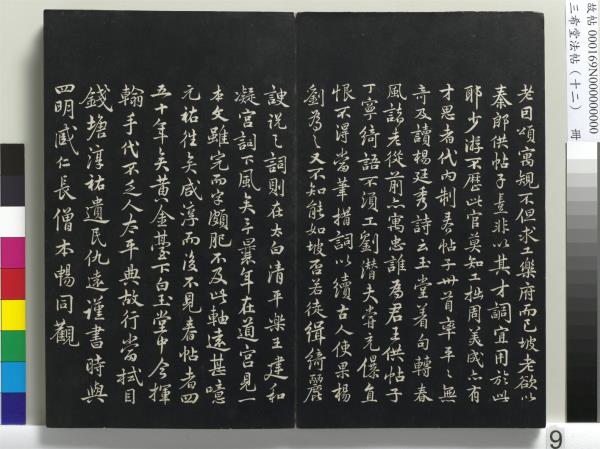 老因頌寓規不但求工樂府而已坡老欲以
秦郎供帖子豈非以其才調宜用於此
耶少游不歷此官莫知工拙周美成亦有
才思者代內制春帖子卅首率平平無
奇及讀楊廷秀詩云玉堂著句轉春
風諸老從前亦寓忠誰為君王供帖子
丁寧綺語不須工劉潛夫嘗兄儤直
恨不得當筆措詞以續古人使果楊
劉為之又不知能如坡否若徒緝綺麗
諛說之詞則在太白清平樂王建和
凝宮詞下風矣予曩年在道宮見一
本文雖完而字頗肥不及此軸遠甚噫
元祐往矣咸淳而後不見春帖者四
五十年矣黃金臺下白玉堂中今揮
翰手代不乏人太平典故行當拭目
錢塘淳祐遺民仇遠謹書時與
四明臧仁長僧本暢同觀
故帖 000169N000000000
三希堂法帖（十二） 冊
9